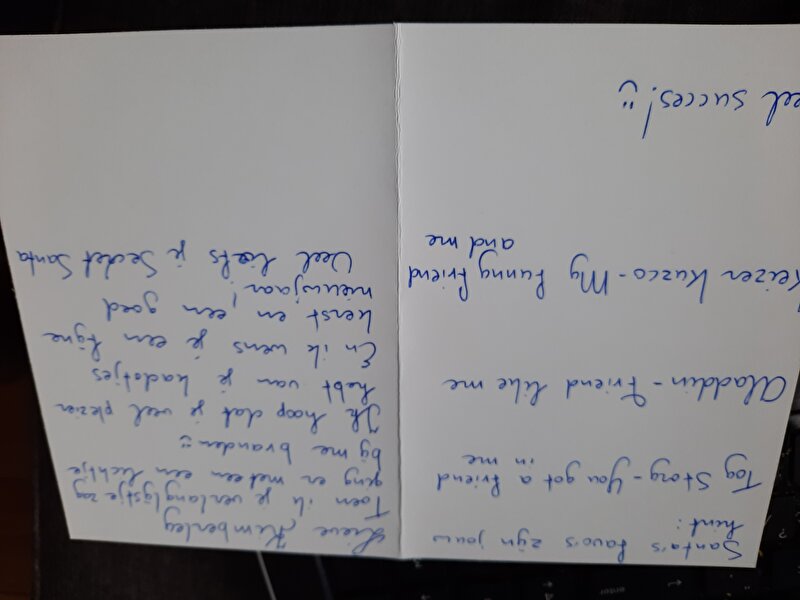 Santa's favo's zijn jouw
hint:
Toy Story - You got a friend
in me
Aladdin - Friend like me
Keizer Kuzco - My funny friend
and me
eel succes! :)
Lieve Kimberley
Toen ik je verlanglijstje zag
ging er meteen een lichtje
bij me branden :)
Ik hoop dat je veel plezier
hebt van je kadotjes
En ik wens je een fijne
kerst en een goed
nieuwjaar,
Veel liefs je Secret Santa
enter